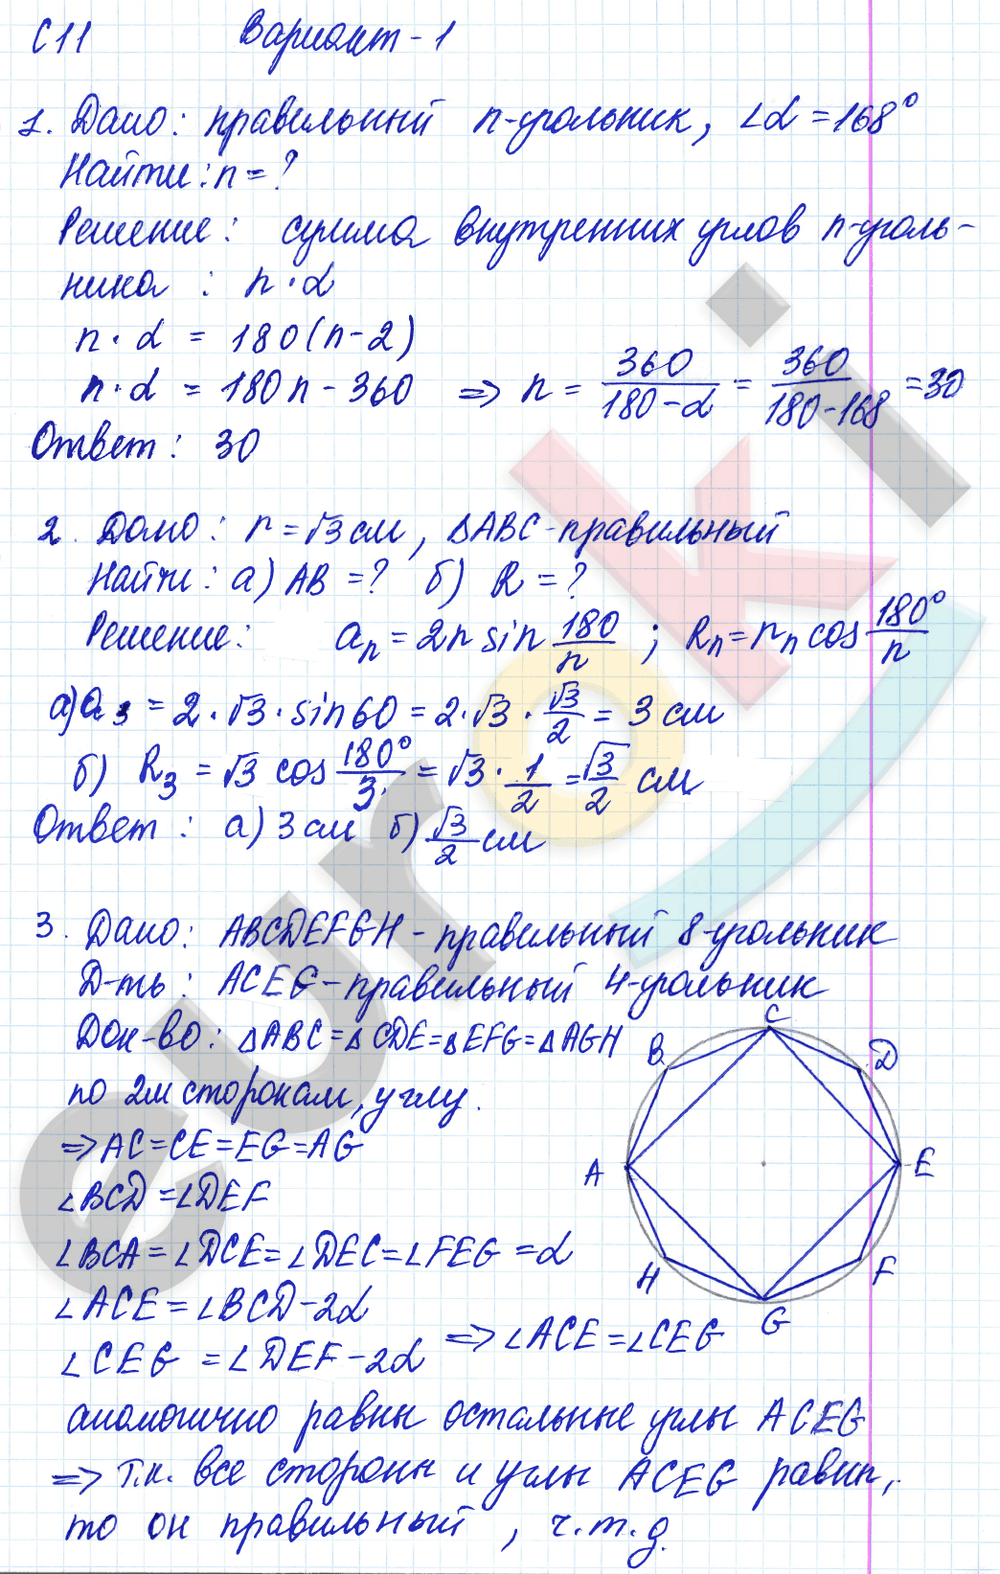 С11 Вариант-1
1. Дано: правильный n-угольник, ∠α = 168°
Найти: n = ?
Решение: сумма внутренних углов n-уголь-
ника : n · α
n · α = 180(n-2)
n · α = 180n - 360 => n = 360/(180-α) = 360/(180-168) = 30
Ответ: 30
2. Дано: r = √3 см, ΔABC-правильный
Найти: а) AB = ? б) R = ?
Решение: aₙ = 2r sin 180/n ; Rₙ = rₙ cos 180°/n
а) a₃ = 2 · √3 · sin 60 = 2 · √3 · √3/2 = 3 см
б) R₃ = √3 cos 180°/3 = √3 · 1/2 = √3/2 см
Ответ: а) 3 см б) √3/2 см
3. Дано: ABCDEFGH - правильный 8-угольник
Д-ть: ACEG - правильный 4-угольник
Док-во: ΔABC = ΔCDE = ΔEFG = ΔAGH
по 2м сторонам, углу.
=> AC = CE = EG = AG
∠BCD = ∠DEF
∠BCA = ∠DCE = ∠DEC = ∠FEG = α
∠ACE = ∠BCD - 2α
∠CEG = ∠DEF - 2α => ∠ACE = ∠CEG
аналогично равны остальные углы ACEG
=> т.к. все стороны и углы ACEG равны,
то он правильный, ч.т.д.
C
B
D
A
E
H
F
G
euroki